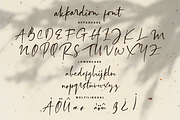 akkordion font
UPPERCASE
ABCDEFGHIJKLM
NOPQRSTUVWXYZ
LOWERCASE
abcdefghijklm
nopqrstuvwxyz
MULTILINGUAL